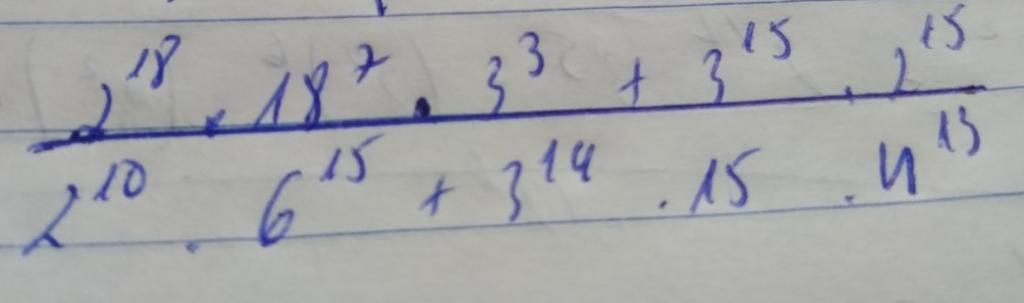 2^18 . 18^7 . 3^3 + 3^15 . 2^15
2^10 . 6^15 + 3^14 . 15 . 4^13